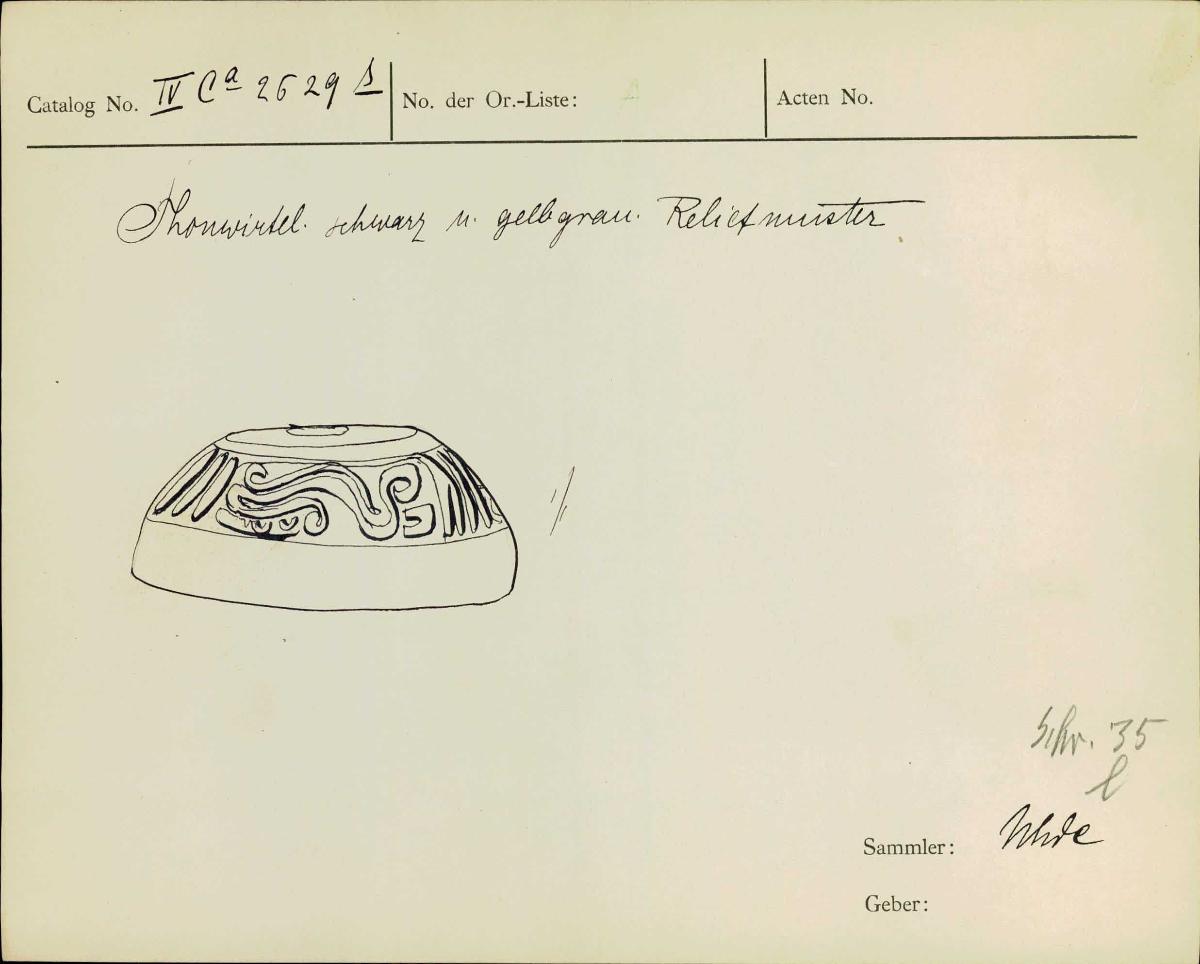 Catalog No. IV Ca 2629 s No. der Or.-Liste: Acten No.
Thonwirtel. schwarz u. gelbgrau. Reliefmuster
1/1
Schr. 35
l
Sammler: Uhde
Geber: